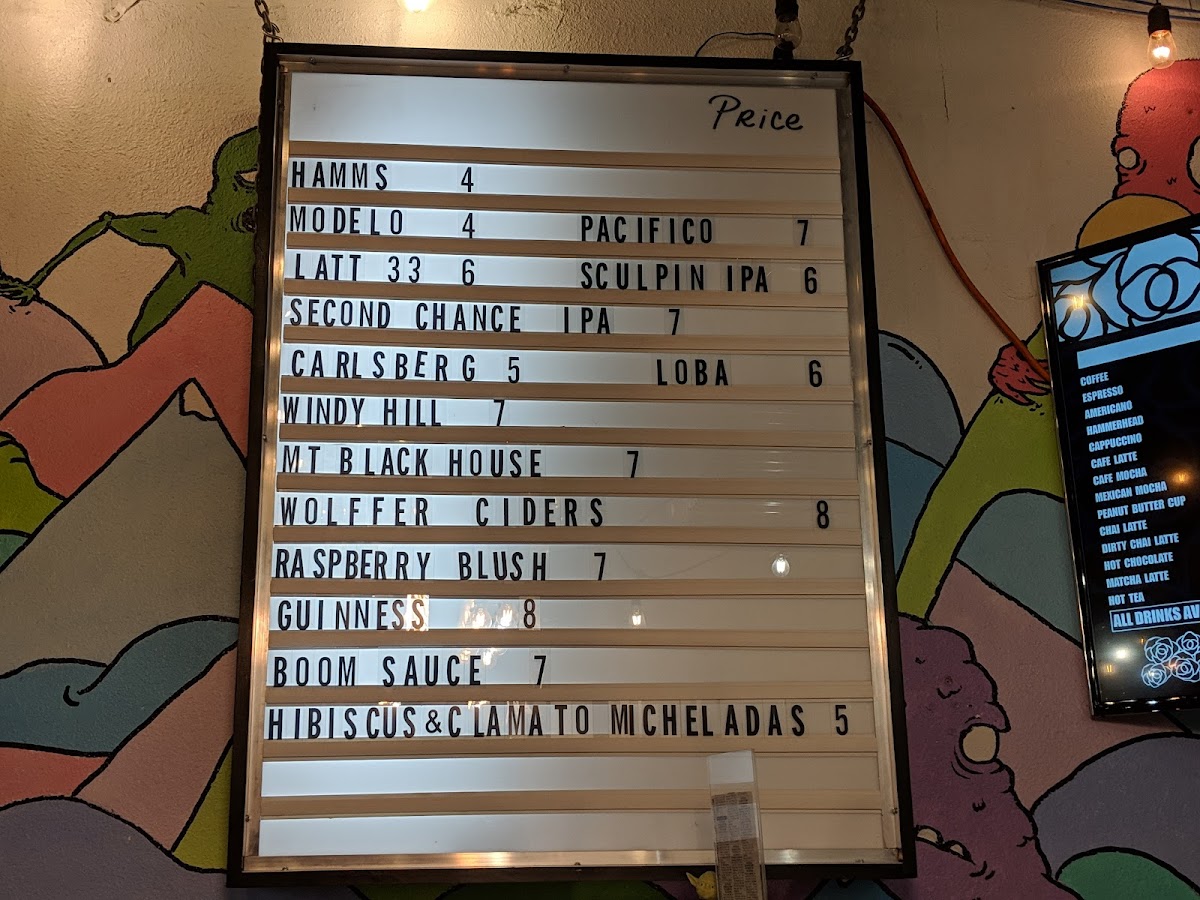 Price
HAMMS 4
MODELO 4 PACIFICO 7
LATT 33 6 SCULPIN IPA 6
SECOND CHANCE IPA 7
CARLSBERG 5 LOBA 6
WINDY HILL 7
MT BLACK HOUSE 7
WOLFFER CIDERS 8
RASPBERRY BLUSH 7
GUINNESS 8
BOOM SAUCE 7
HIBISCUS & CLAMATO MICHELADAS 5
COFFEE
ESPRESSO
AMERICANO
HAMMERHEAD
CAPPUCCINO
CAFE LATTE
CAFE MOCHA
MEXICAN MOCHA
PEANUT BUTTER CUP
CHAI LATTE
DIRTY CHAI LATTE
HOT CHOCOLATE
MATCHA LATTE
HOT TEA
ALL DRINKS AV